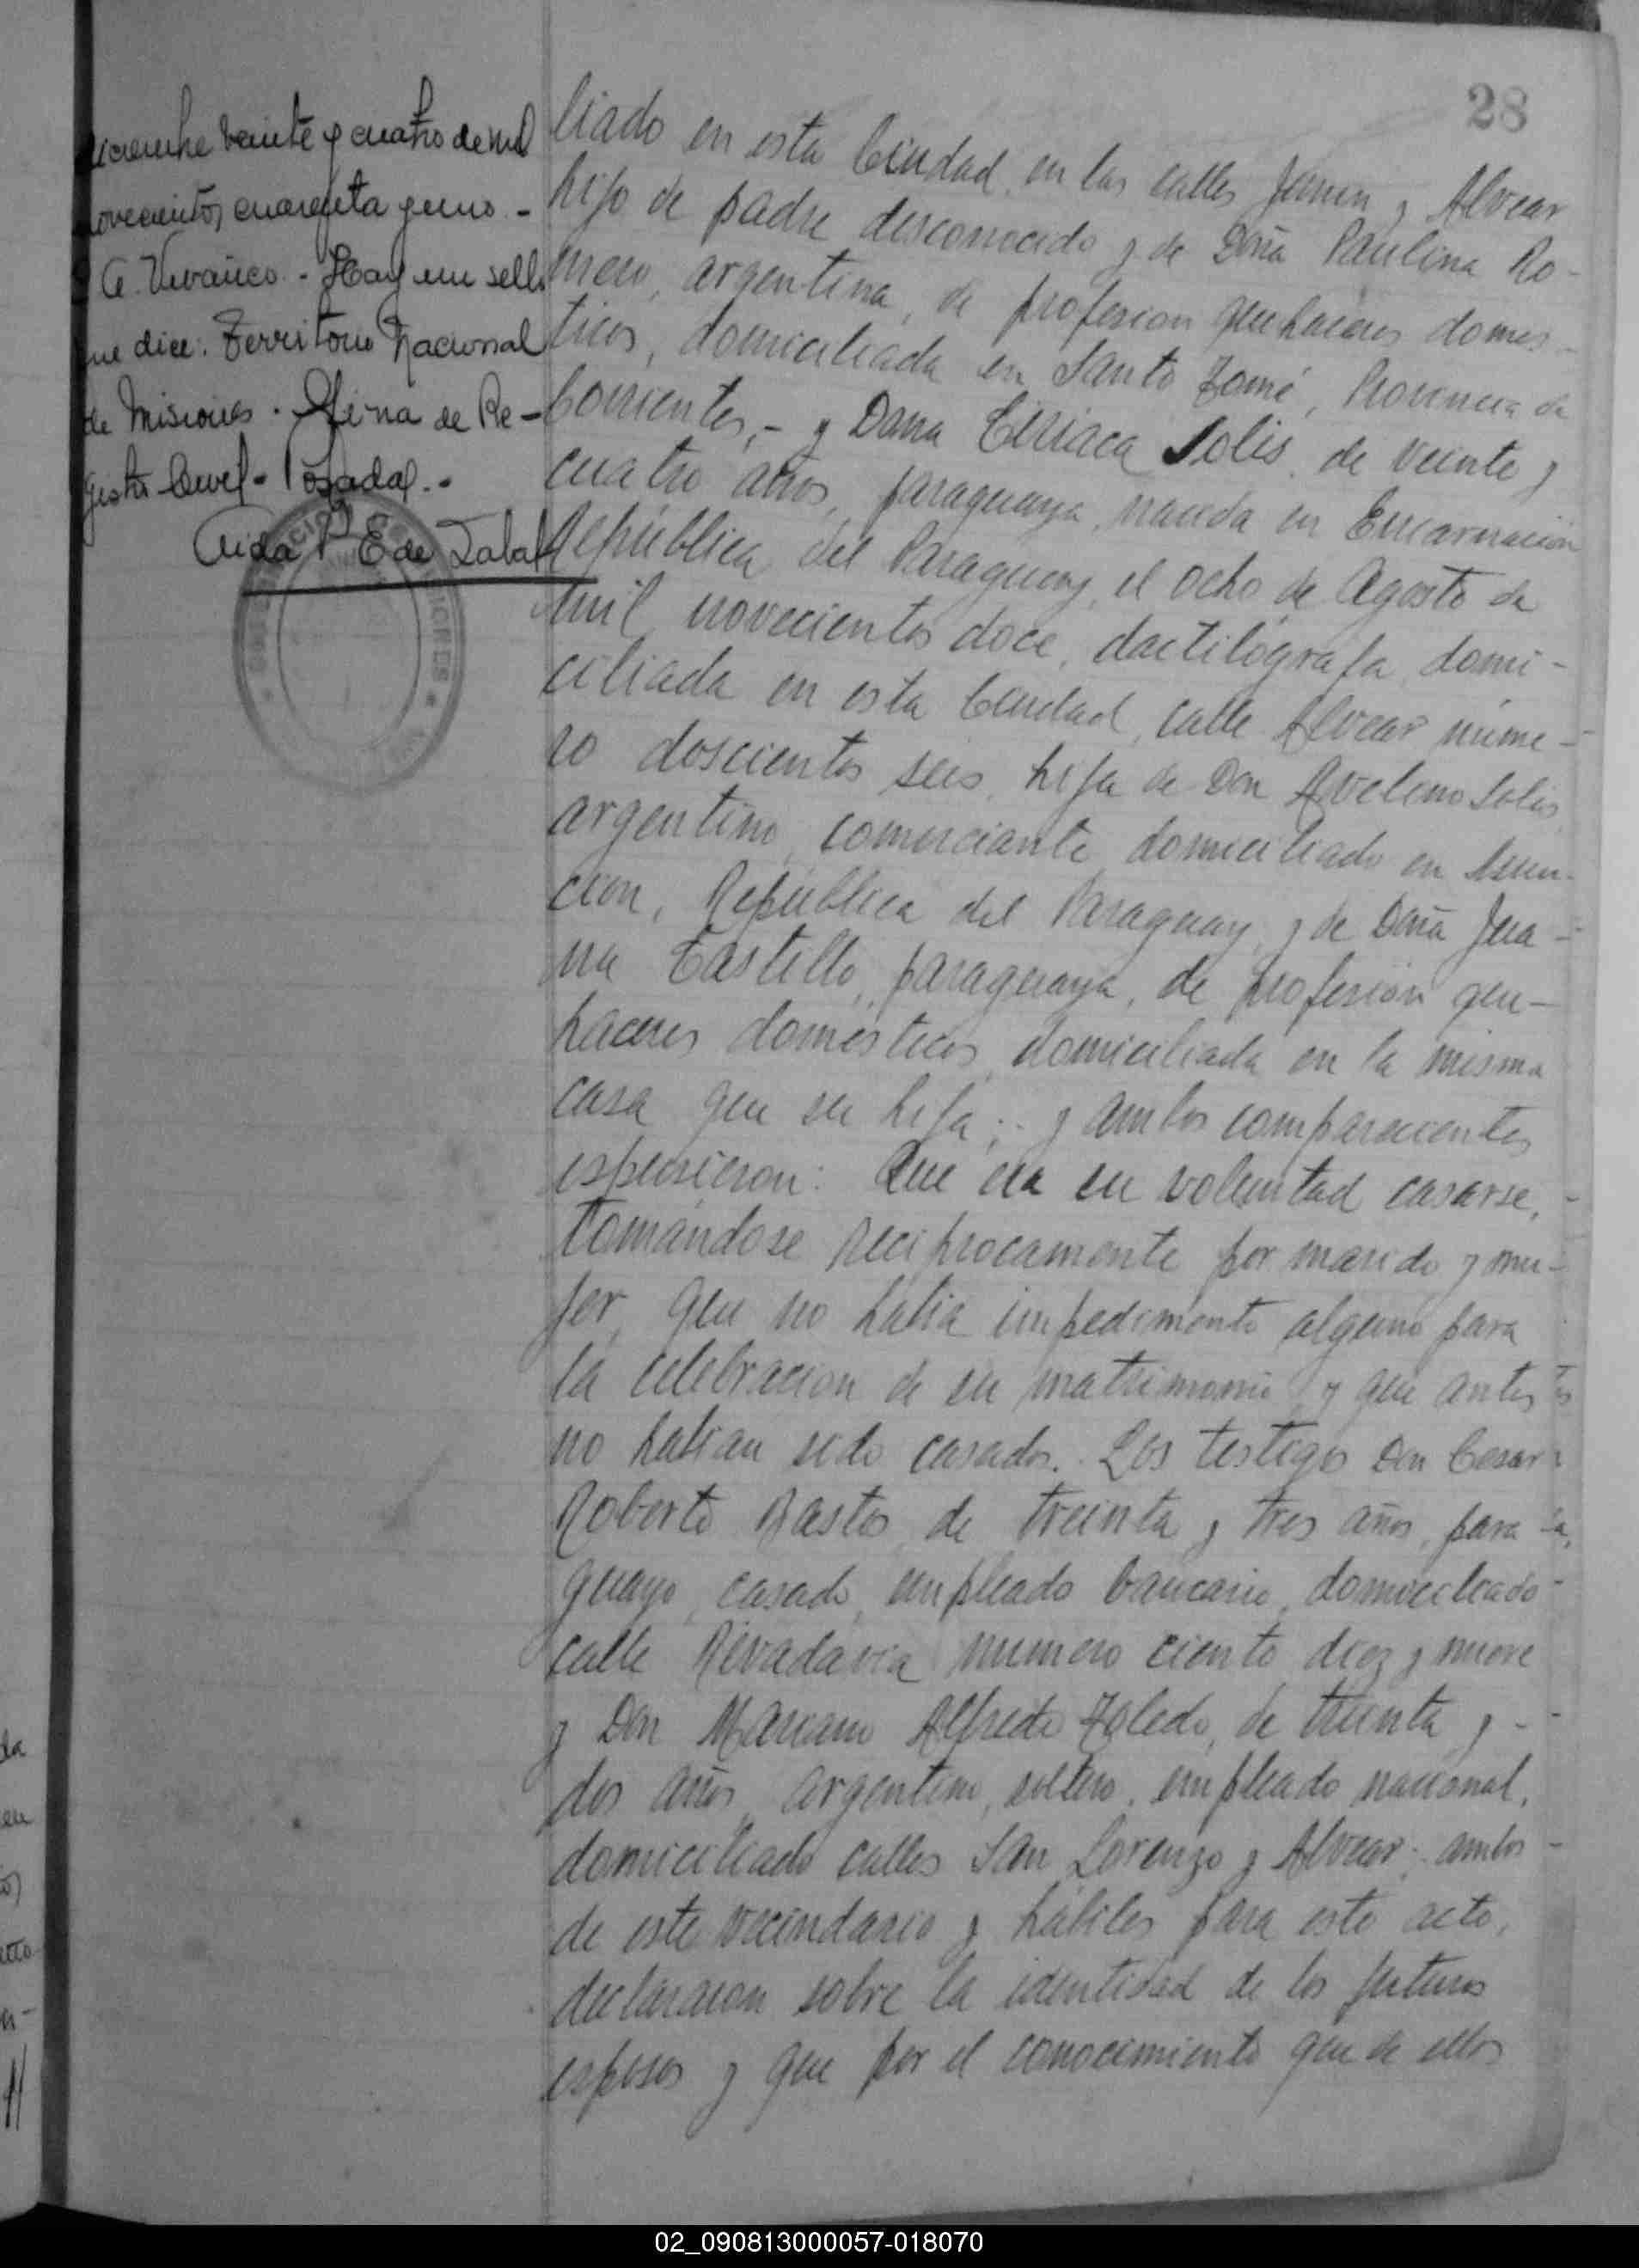 28
veinte y cuatro de mil
novecientos cuarenta y uno. -
Hay un sello
que dice: Territorio Nacional
de Misiones. Oficina de Re-
gistro Civil - Posadas. -
Aida P. E. de
liado en esta Ciudad, en las calles Junin y Alvear
hijo de padre desconocido y de Doña Paulina Ro-
mero, argentina, de profesion quehaceres domes-
ticos, domiciliada en Santo Tomé, Provincia de
Corrientes, - y Doña Ciriaca Solis, de veinte y
cuatro años, paraguaya, nacida en Encarnación
República del Paraguay, el ocho de Agosto de
mil novecientos doce, dactilógrafa, domi-
ciliada en esta Ciudad, calle Alvear núme-
ro doscientos seis, hija de Don Avelino Solis,
argentino, comerciante, domiciliado en Asun-
cion, República del Paraguay, y de Doña Jua-
na Castillo, paraguaya, de profesión que-
haceres domésticos, domiciliada en la misma
casa que su hija; y ambos comparecientes
espusieron: Que era su voluntad casarse,
tomándose reciprocamente por marido y mu-
jer, que no habia impedimento alguno para
la celebracion de su matrimonio y que antes
no habian sido casados. Los testigos Don Cesar
Roberto Bastos, de treinta y tres años, para
guayo, casado, empleado bancario, domiciliado
calle Rivadavia numero ciento diez y nueve
y Don Mariano Alfredo Toledo, de treinta y -
dos años, argentino, soltero, empleado nacional,
domiciliado calles San Lorenzo y Alvear; ambos
de este vecindario y hábiles para este acto,
declararon sobre la identidad de los futuros
esposos y que por el conocimiento que de ellos
02_090813000057-018070